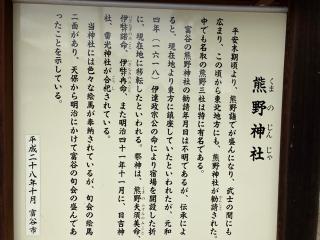 熊野神社
くまのじんじゃ
平安末期頃より、熊野詣でが盛んになり、武士の間にも
広まり、この頃から東北地方にも、熊野神社が勧請された。
中でも名取の熊野三社は特に有名である。
富谷の熊野神社の勧請年月日は不明であるが、伝承によ
ると、現在地より東方に鎮座していたといわれたが、元和
四年（一六一八）伊達政宗公の命により宿場を開設した折
に、現在地に移転したといわれる。祭神は、熊野夫須美命、
伊弉諾命、伊弉冉命、また明治四十一年十一月に、日吉神
社、雷光神社が合祀されている。
当神社には色々な絵馬が奉納されているが、句会の絵馬
二面があり、天保から明治にかけて富谷の句会の盛んであ
ったことを示している。
平成二十八年十月　富谷市